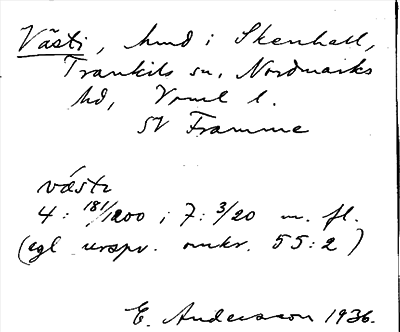 Västi, hmd i Skenhall,
Trankils sn, Nordmarks
hd, Vrml l.
SV Framme
västi
4: 181/1200 i 7: 3/20 m. fl.
(egl urspr. omkr. 55:2)
E. Andersson 1936.